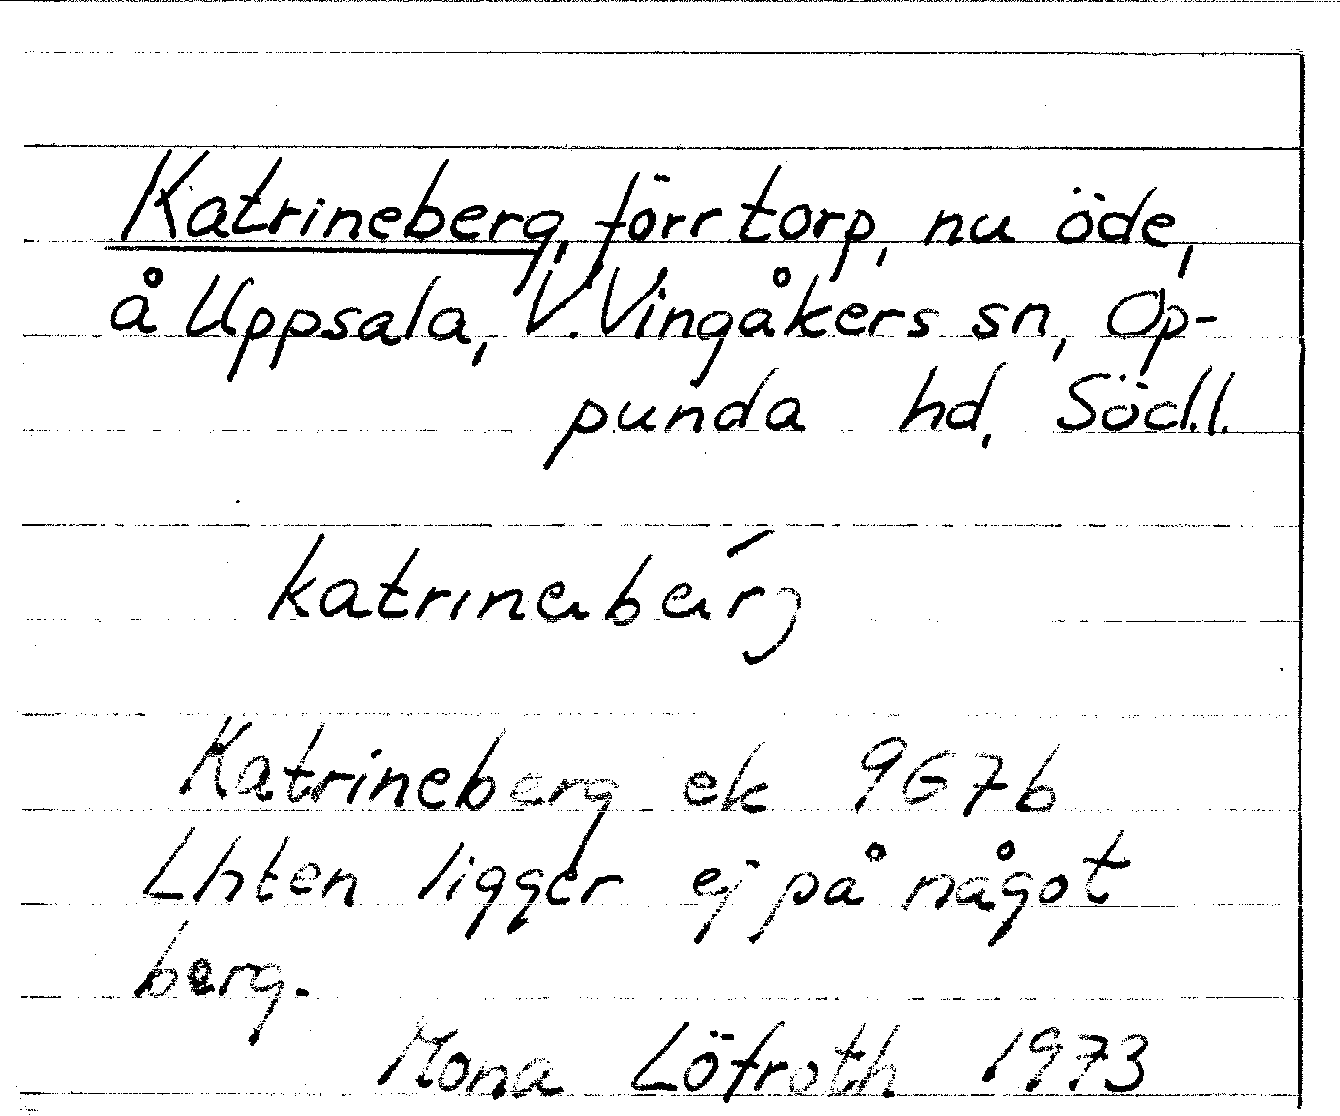 Katrineberg, förr torp, nu öde,
å Uppsala, V. Vingåkers sn, Op-
punda hd, Södl.l.
katrinabárj
Katrineberg ek 9G7b
Lhten ligger ej på något
berg.
Mona Löfroth 1973